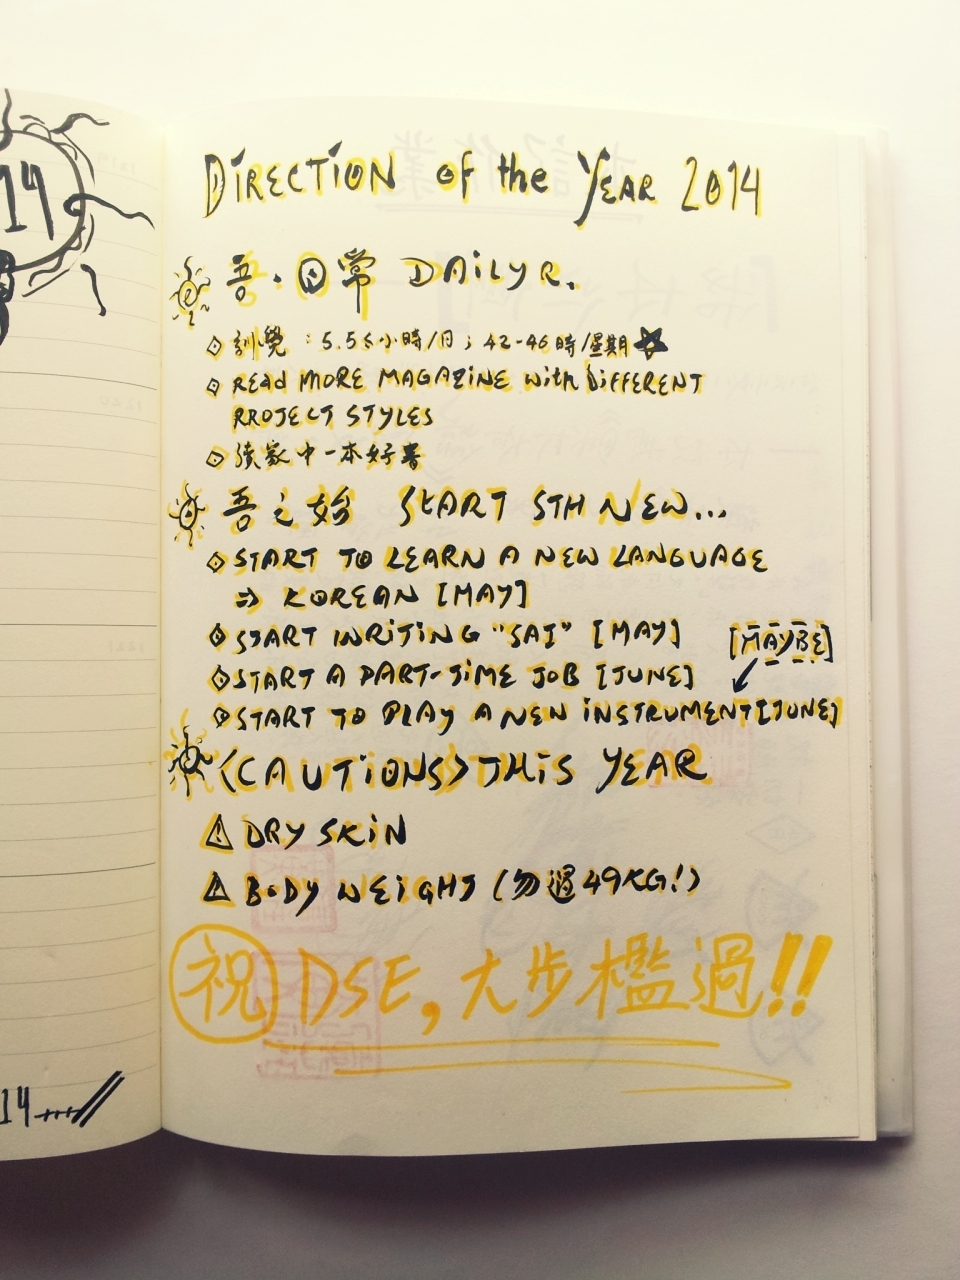 14
DIRECTION of the YEAR 2014
吾·日常 DAILY R.
訓覺 : 5.5小時/日; 42-46時/星期
READ MORE MAGAZINE with DIFFERENT
RROJECT STYLES
家中一本好書
吾之始 START STH NEW...
START TO LEARN A NEW LANGUAGE
⇒ KOREAN [MAY]
START WRITING "SAI" [MAY]
[MAYBE]
START A PART-TIME JOB [JUNE]
START TO PLAY A NEW INSTRUMENT [JUNE]
<CAUTIONS> THIS YEAR
DRY SKIN
BODY WEIGHT (勿過49KG!)
祝 DSE, 大步檻過!!
14